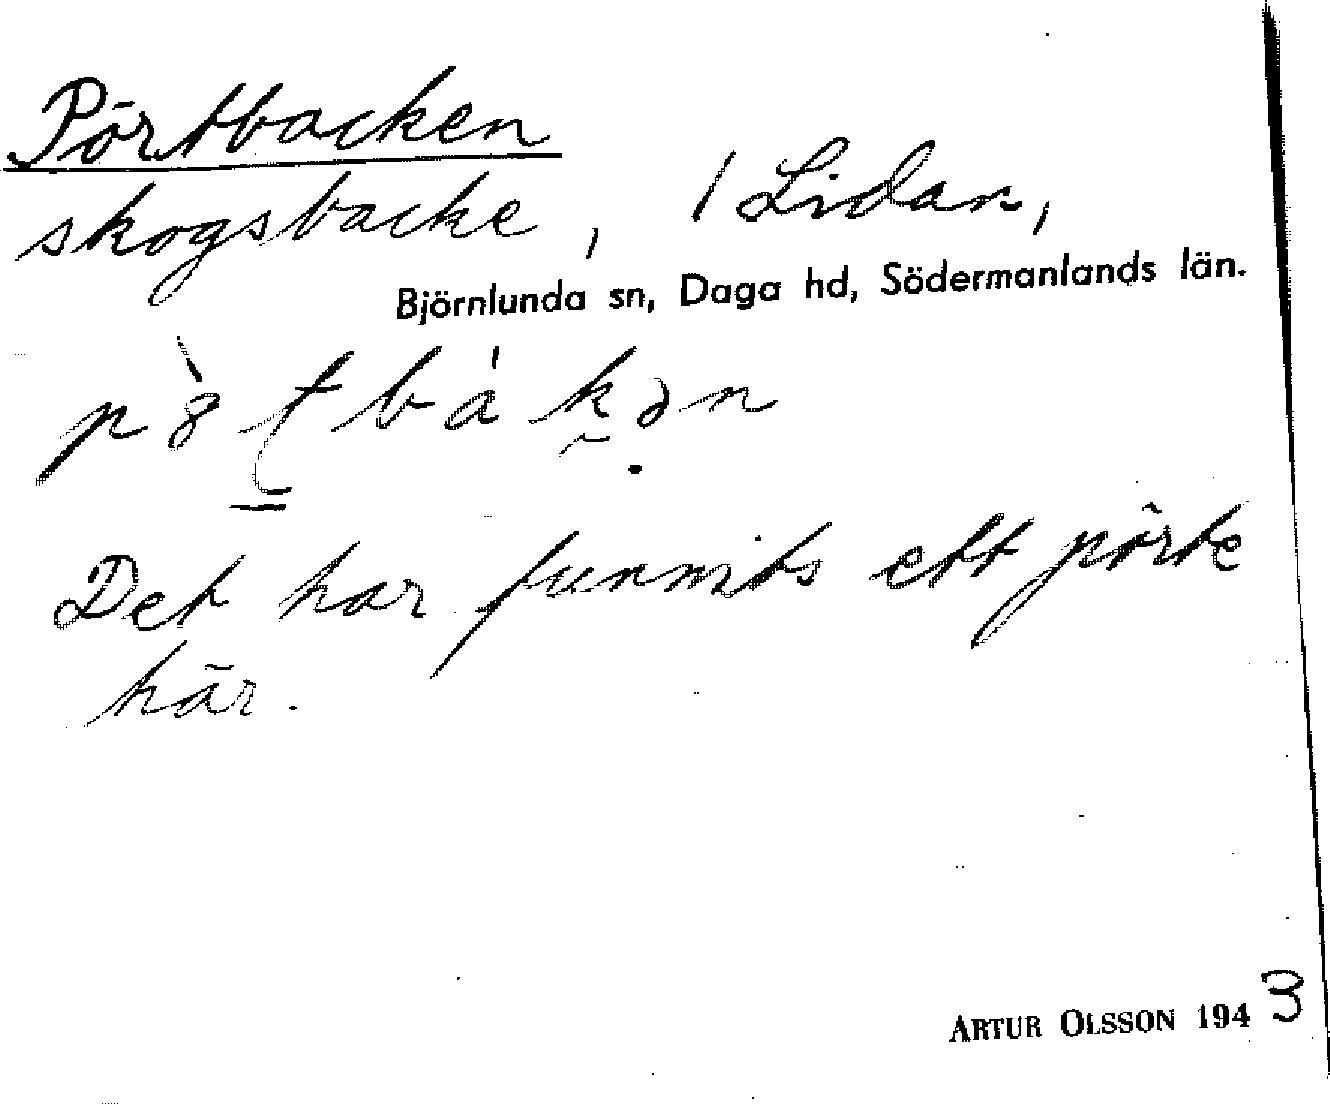 Pörtbacken
skogsbacke, / Lidan,
Björnlunda sn, Daga hd, Södermanlands län.
Det har funnits ett pörte
här.
ARTUR OLSSON 1943